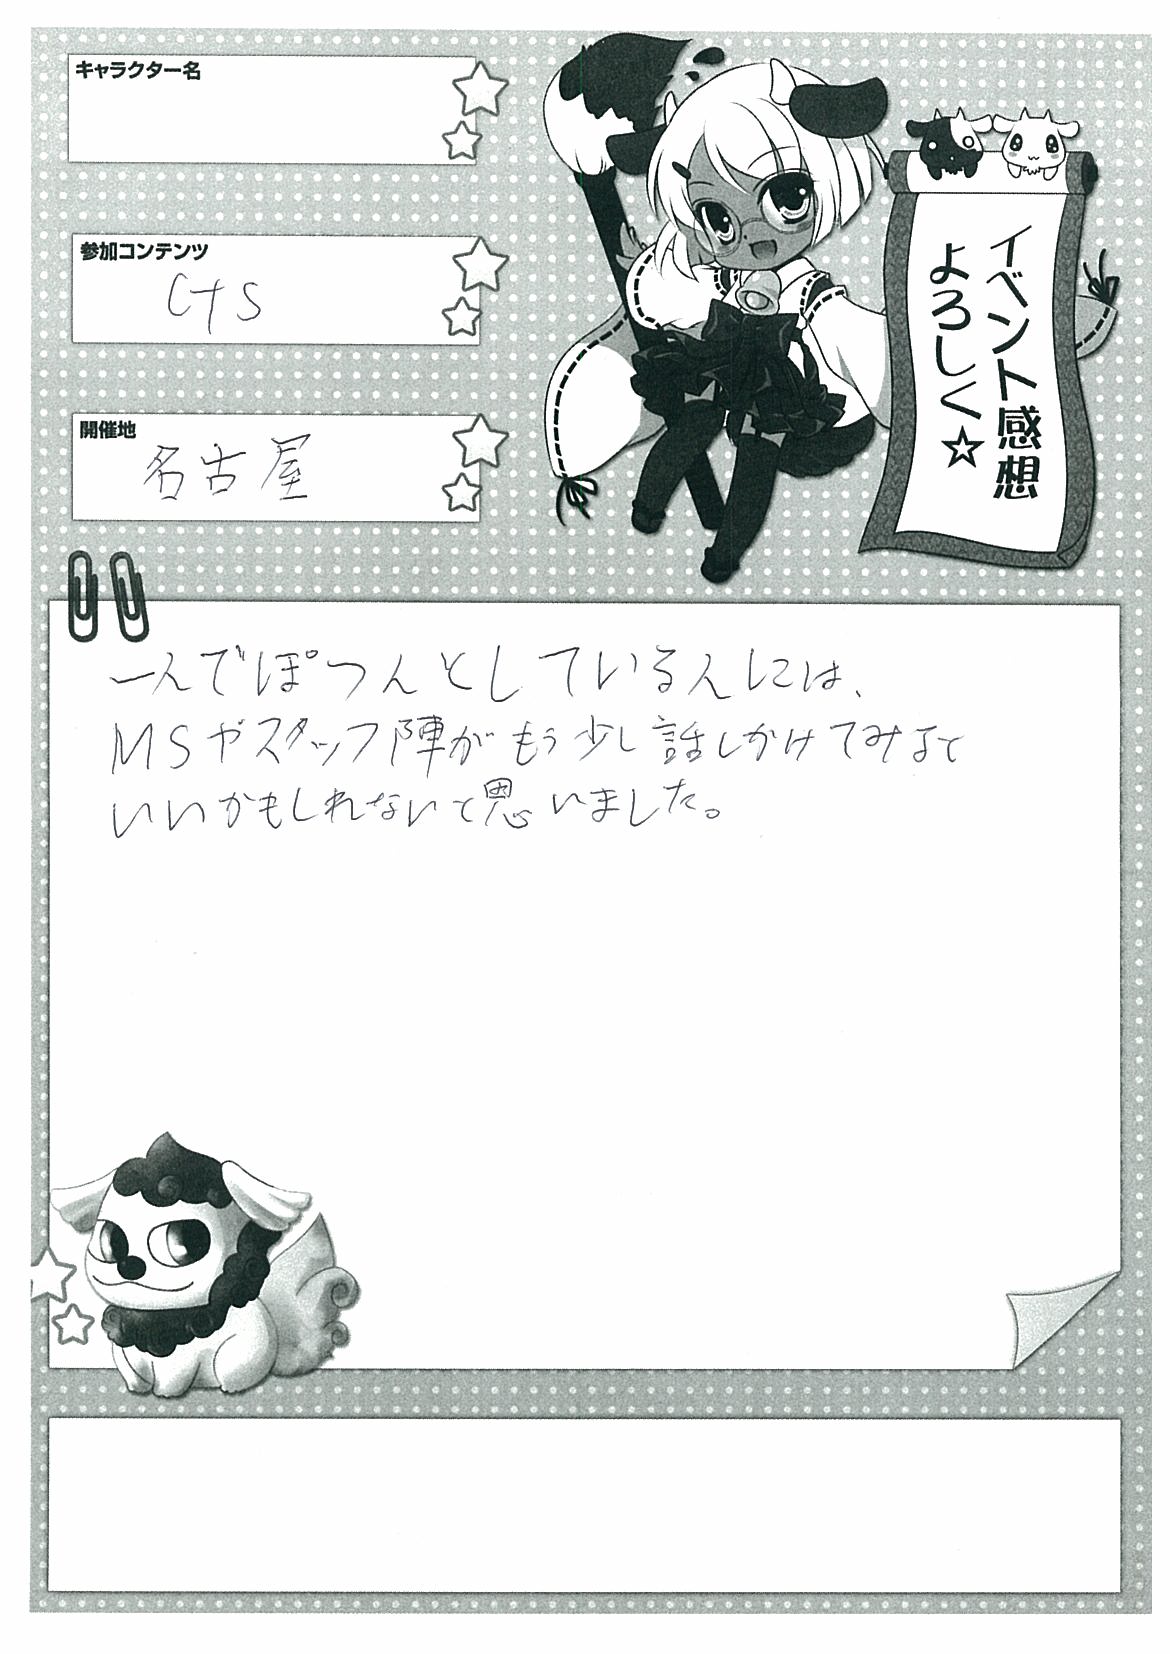 キャラクター名
参加コンテンツ
CTS
開催地
名古屋
イベント感想
よろしく☆
一人でぽつんとしている人には、
MSやスタッフ陣がもう少し話しかけてみると
いいかもしれないと思いました。